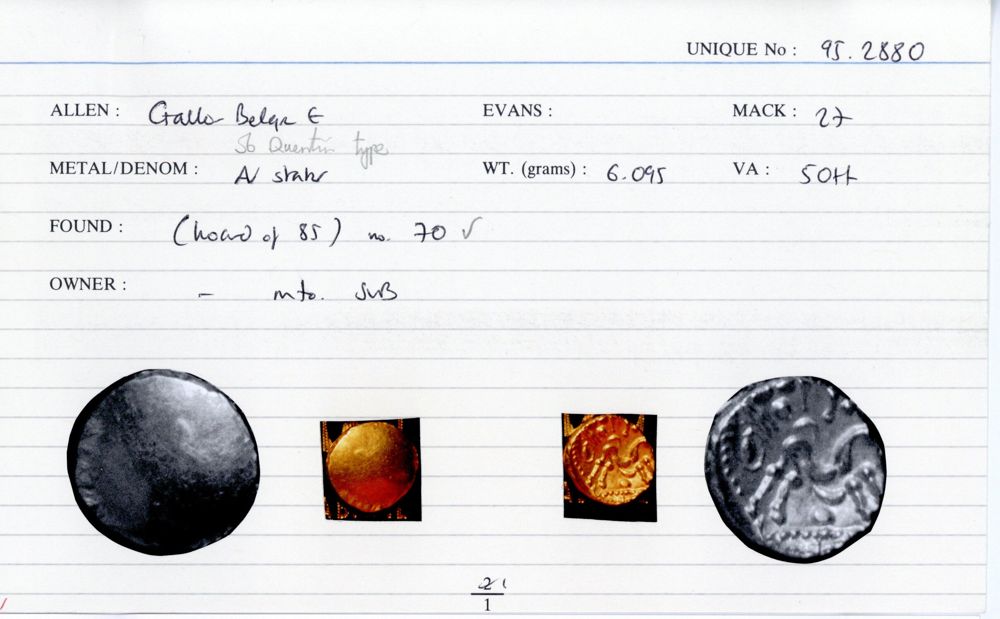 UNIQUE No : 95.2880
ALLEN : Gallo-Belgic E EVANS : MACK : 27
St Quentin type
METAL/DENOM : AV stater WT. (grams) : 6.095 VA : 50
FOUND : (hoard of 85) no. 70 ✓
OWNER : – info.
2 1
1